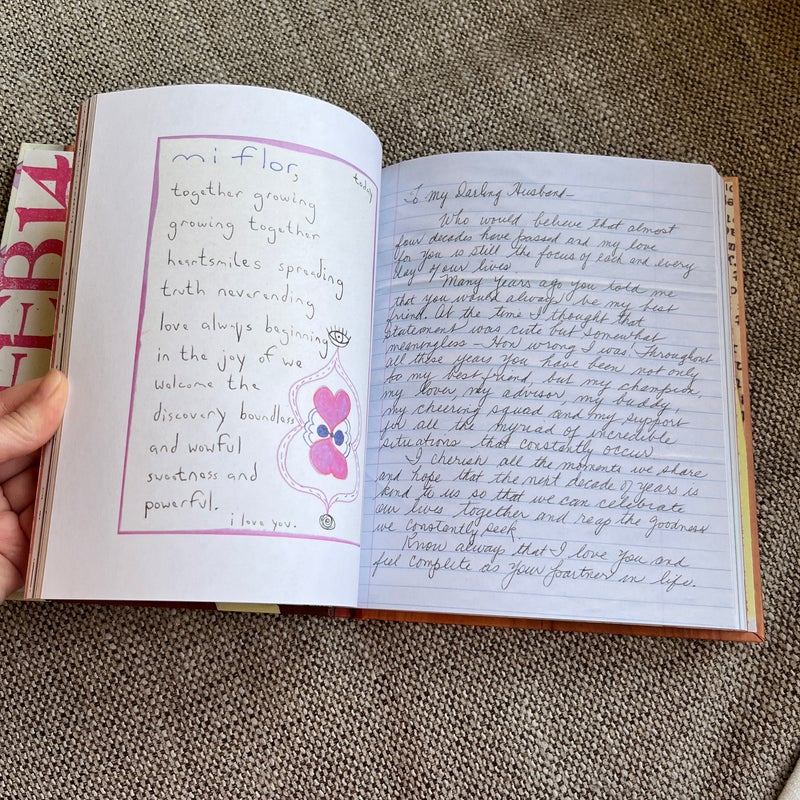 FEB 14
mi flor,
today
together growing
growing together
heartsmiles spreading
truth neverending
love always beginning
in the joy of we
welcome the
discovery boundless
and wowful
sweetness and
powerful.
i love you.
To my Darling Husband-
Who would believe that almost
four decades have passed and my love
for you is still the focus of each and every
day of our lives.
Many years ago you told me
that you would always be my best
friend. At the time I thought that
statement was cute but somewhat
meaningless - How wrong I was. Throughout
all these years you have been not only
my best friend, but my champion,
my lover, my advisor, my buddy,
my cheering squad and my support
for all the myriad of incredible
situations that constantly occur.
I cherish all the moments we share
and hope that the next decade of years is
kind to us so that we can celebrate
our lives together and reap the goodness
we constantly seek.
Know always that I love you and
feel complete as your partner in life.